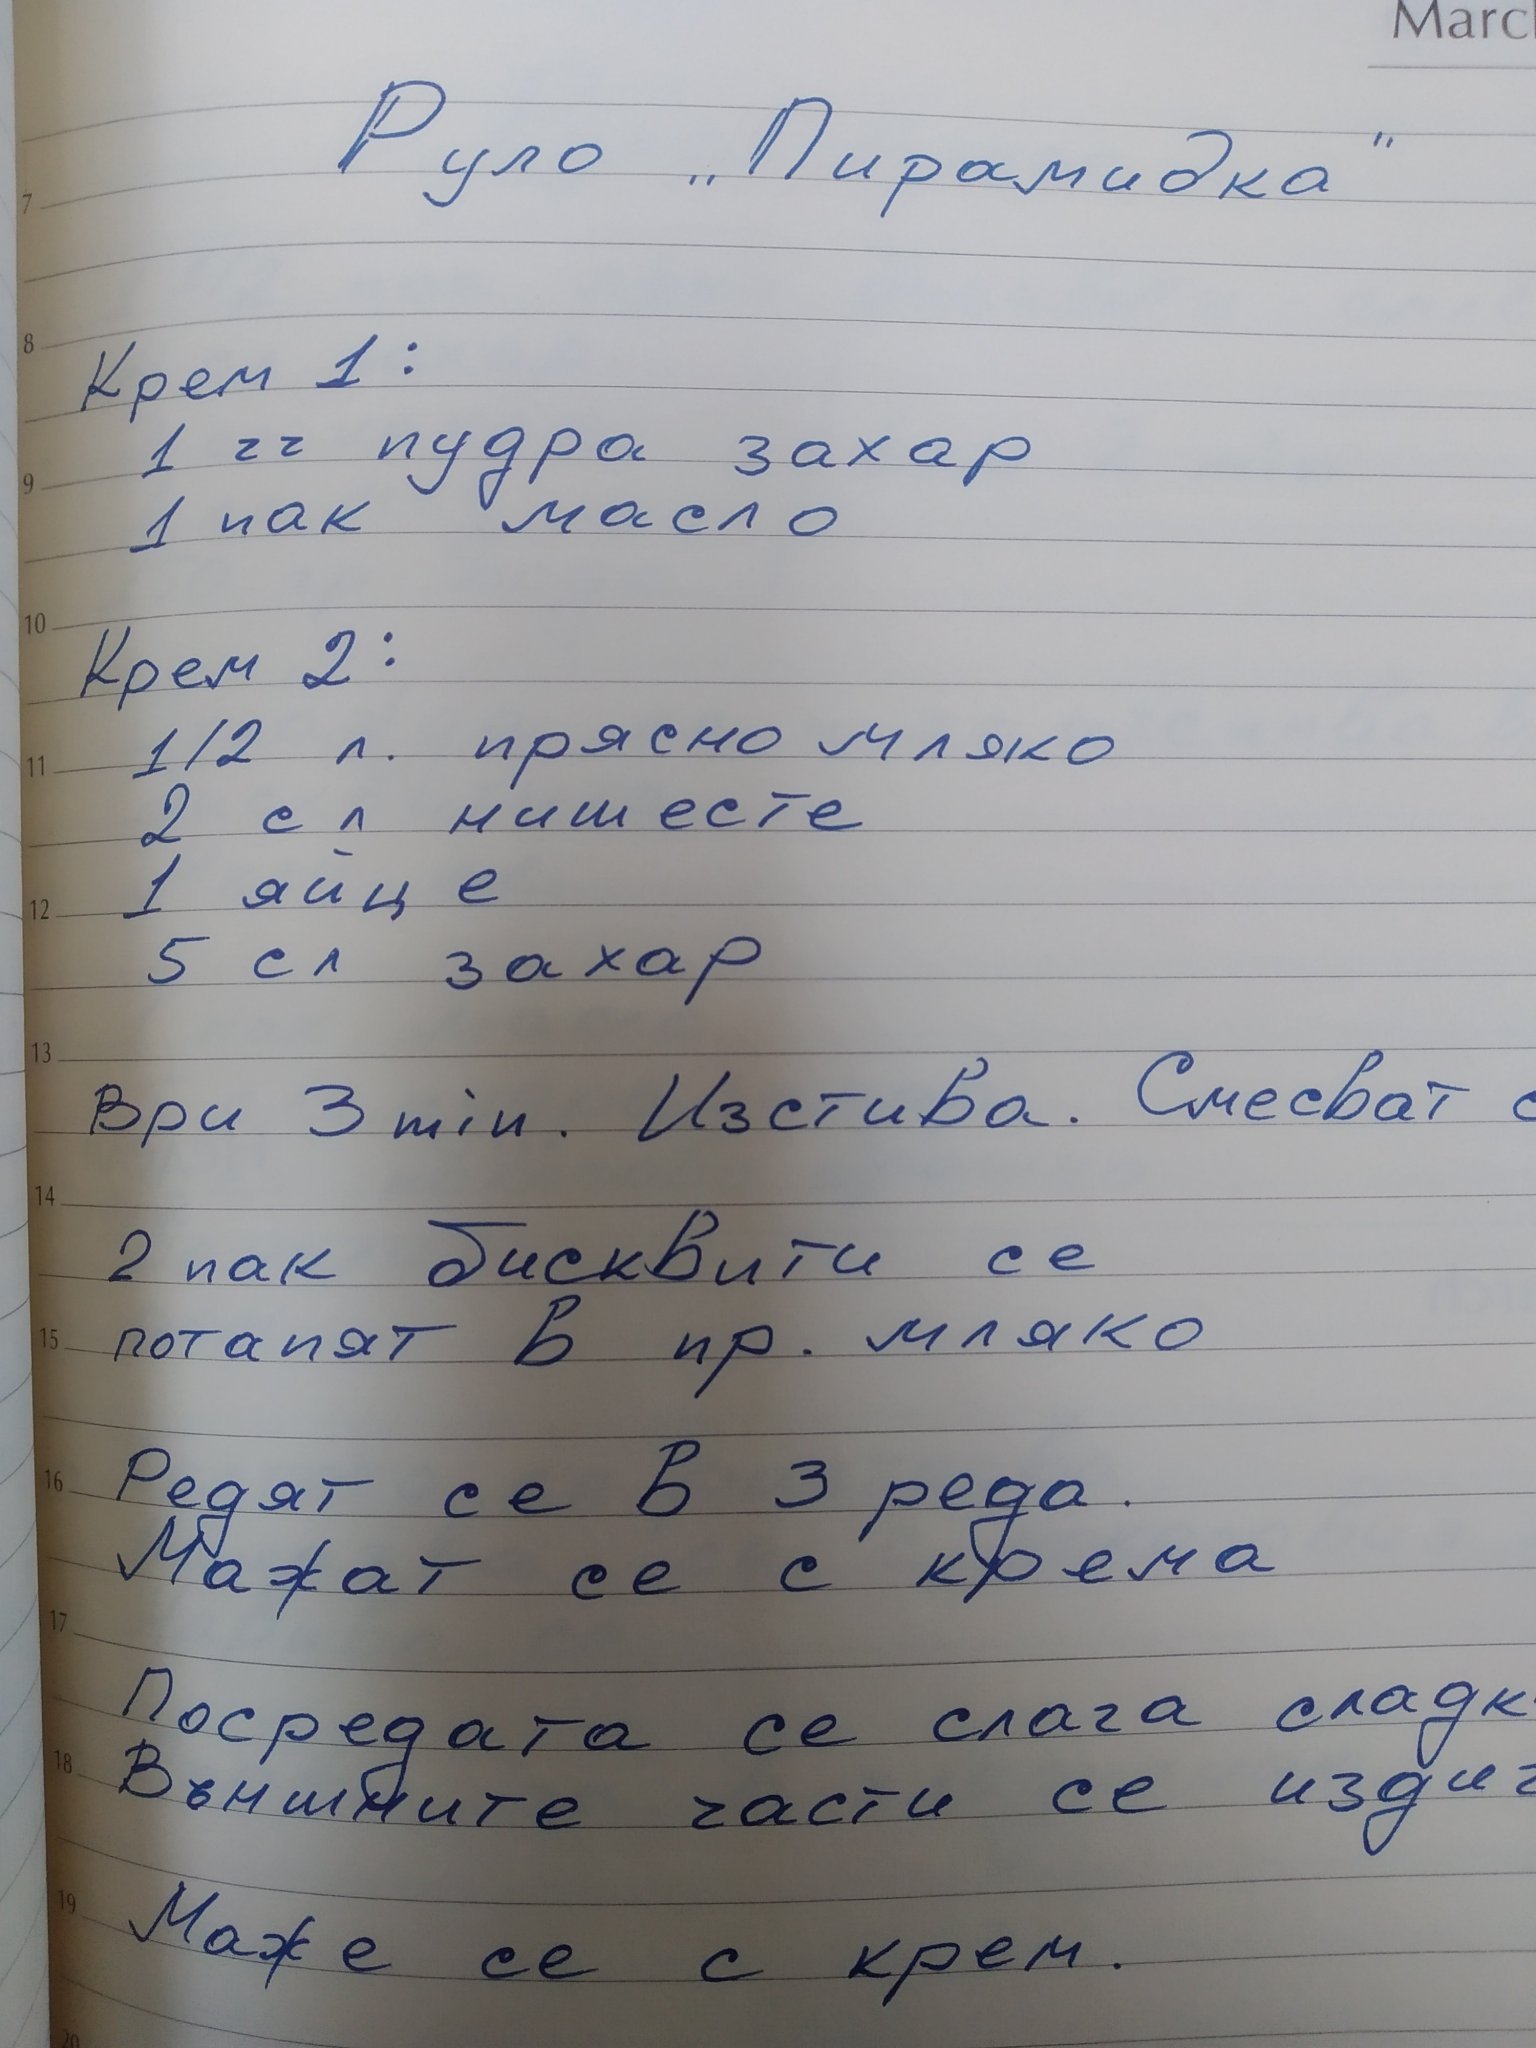 March
Руло „Пирамидка"
7
8
Крем 1:
1 чч пудра захар
9
1 пак масло
10
Крем 2:
1/2 л. прясно мляко
11
2 сл нишесте
1 яйце
12
5 сл захар
13
Ври 3 min. Изстива. Смесват с
14
2 пак бисквити се
потапят в пр. мляко
15
Редят се в 3 реда.
16
Мажат се с крема
17
Посредата се слага сладк
Външните части се издиг
18
19
Маже се с крем.
20